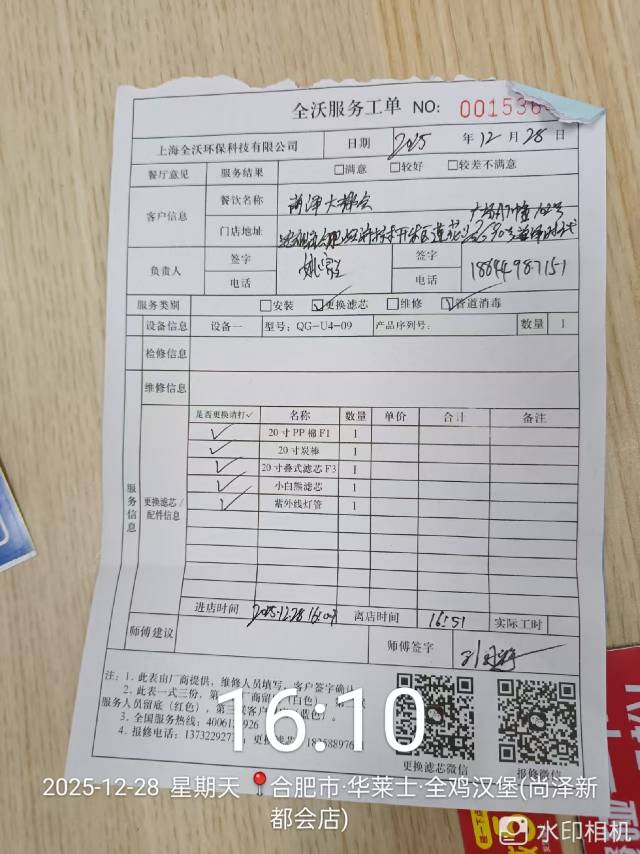 全沃服务工单 NO: 00153
上海全沃环保科技有限公司 日期 2025 年 12 月 28 日
餐厅意见 服务结果 □满意 □较好 □较差不满意
客户信息 餐饮名称 尚泽大都会
门店地址
负责人 签字 签字
电话 电话
服务类别 □安装 ☑更换滤芯 □维修 ☑管道消毒
设备信息 设备一 型号：QG-U4-09 产品序列号： 数量 1
检修信息
维修信息
服务信息
更换滤芯/
配件信息
是否更换请打✓ 名称 数量 单价 合计 备注
✓ 20寸PP棉F1 1
✓ 20寸炭棒 1
✓ 20寸叠式滤芯F3 1
✓ 小白熊滤芯 1
✓ 紫外线灯管 1
进店时间 2025.12.28 16:09 离店时间 16:51 实际工时
师傅建议 师傅签字
注：1. 此表由厂商提供，维修人员填写，客户签字确认
2. 此表一式三份，第
服务人员留底（红色），
3. 全国服务热线：4006
4. 报修电话：
更换滤芯微信 报修微信
16:10
2025-12-28 星期天 合肥市·华莱士·全鸡汉堡(尚泽新
都会店)
水印相机